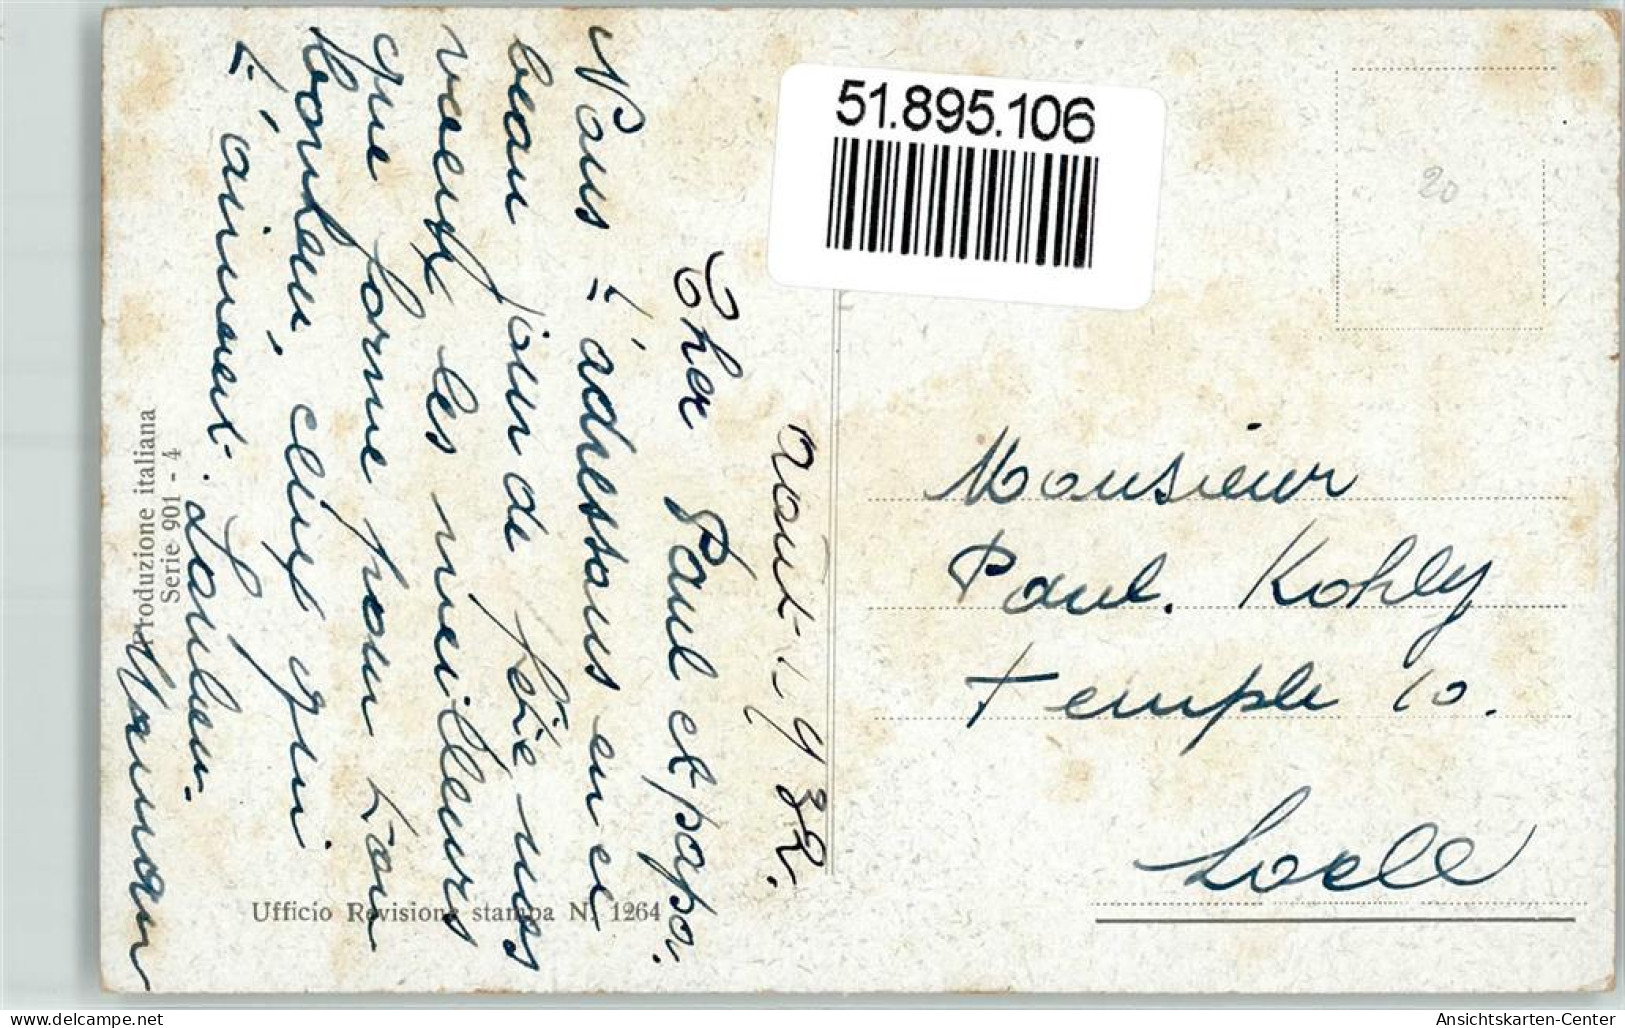 51.895.106
20
Août 1932.
Cher Paul et papa.
Nous t'adressons en ce
beau jour de fête nos
voeux les meilleurs
que forme pour ton
bonheur, ceux qui
t'aiment.
Maman
Monsieur
Paul. Kohly
Temple 10.
Locle
Produzione italiana
Serie 901 - 4
Ufficio Revisione stampa N. 1264
Ansichtskarten-Center
www.delcampe.net